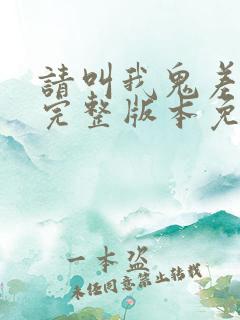 請叫我鬼差
完整版本免
一本盗
未经同意禁止转载